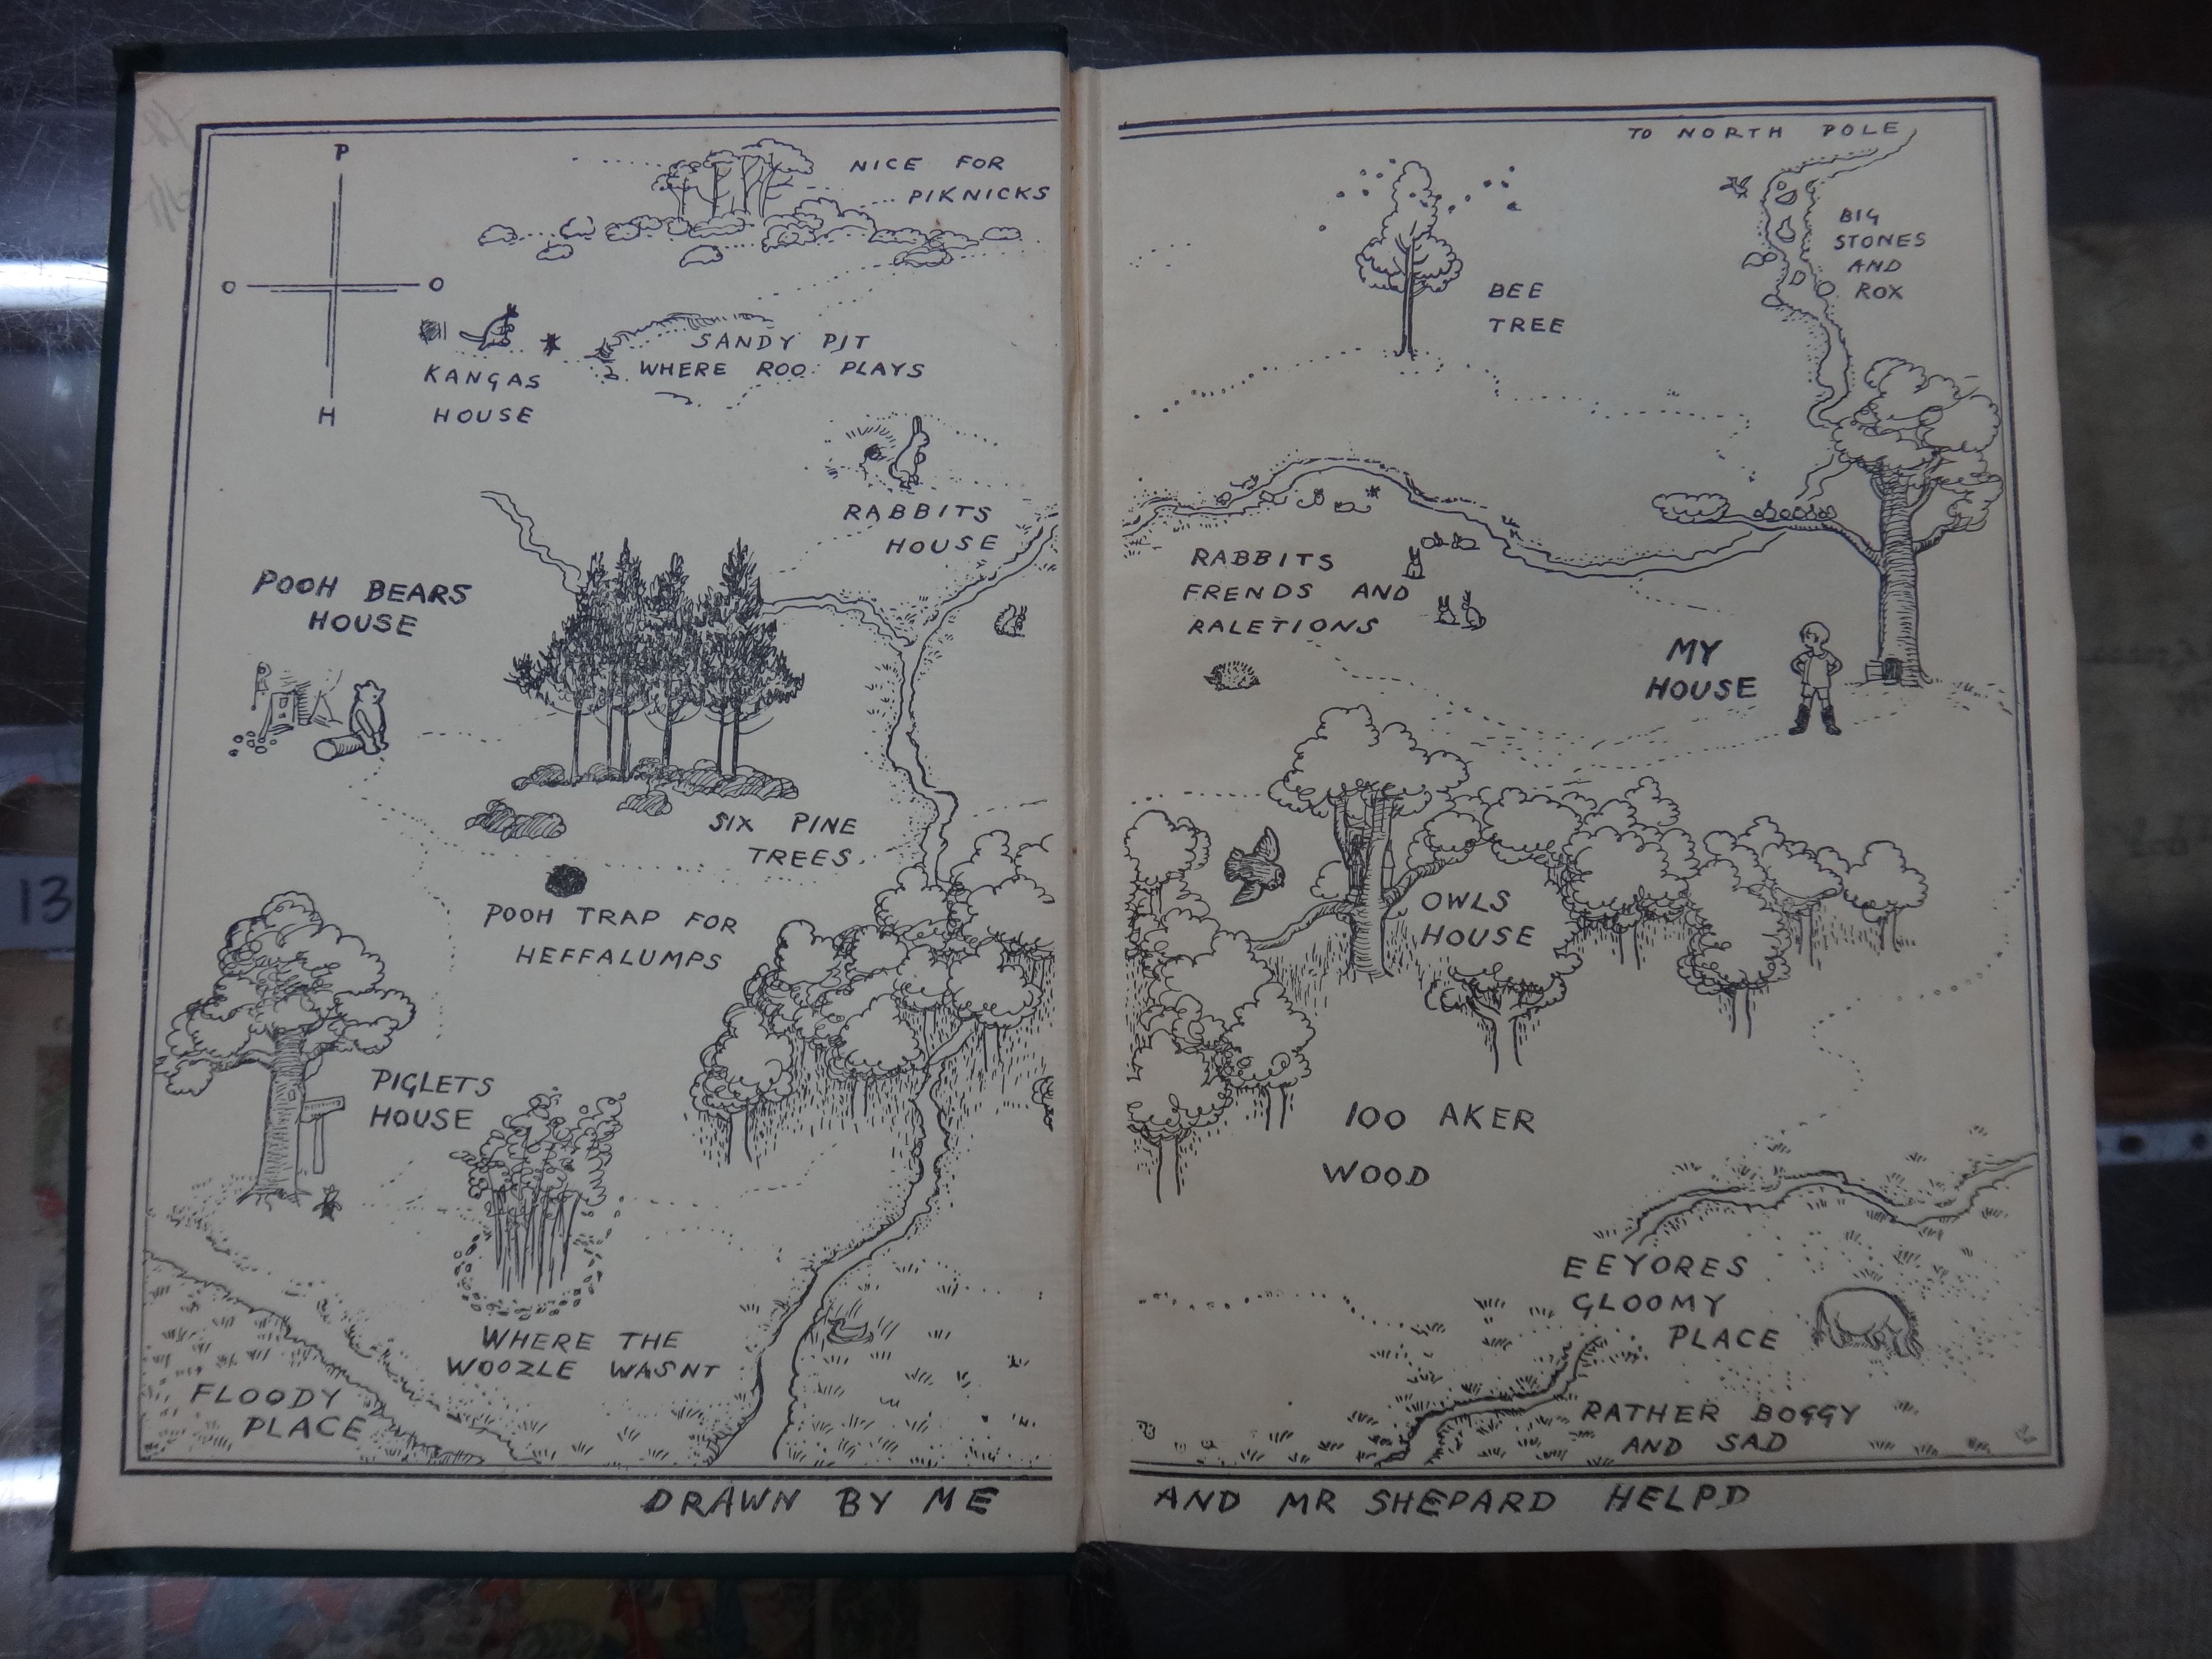 P
O
O
H
NICE FOR
PIKNICKS
KANGAS
HOUSE
SANDY PIT
WHERE ROO PLAYS
RABBITS
HOUSE
POOH BEARS
HOUSE
SIX PINE
TREES
POOH TRAP FOR
HEFFALUMPS
PIGLETS
HOUSE
WHERE THE
WOOZLE WASNT
FLOODY
PLACE
DRAWN BY ME
TO NORTH POLE
BIG
STONES
AND
ROX
BEE
TREE
RABBITS
FRENDS AND
RALETIONS
MY
HOUSE
OWLS
HOUSE
100 AKER
WOOD
EEYORES
GLOOMY
PLACE
RATHER BOGGY
AND SAD
AND MR SHEPARD HELPD
13